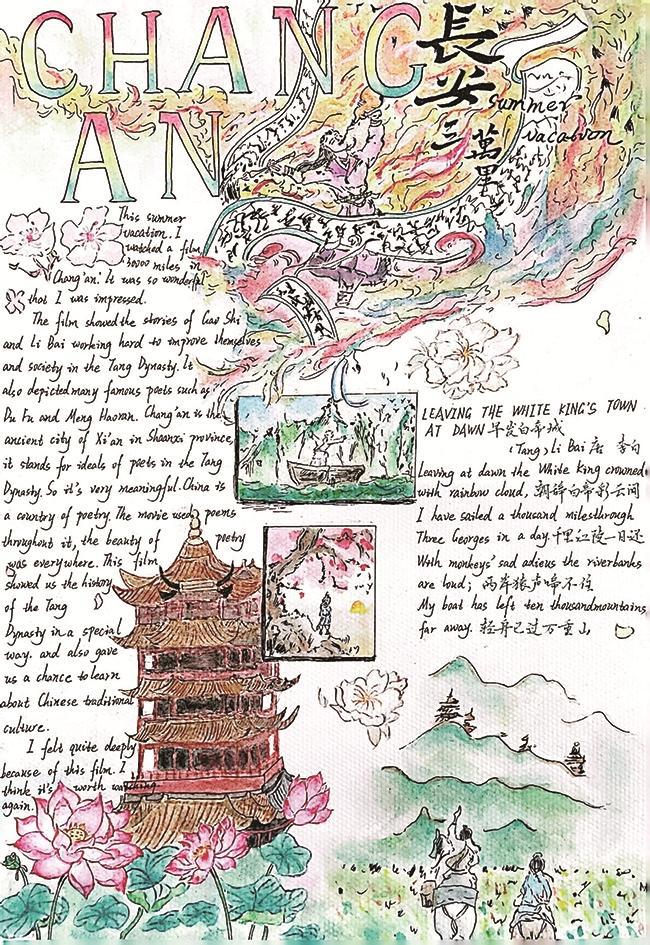 CHANG
AN
長安
三萬里
summer
vacation
This summer
vacation, I
watched a film
30000 miles in
Chang'an. It was so wonderful
that I was impressed.
The film showed the stories of Gao Shi
and Li Bai working hard to improve themselves
and society in the Tang Dynasty. It
also depicted many famous poets such as
Du Fu and Meng Haoran. Chang'an is the
ancient city of Xi'an in Shaanxi province,
it stands for ideals of poets in the Tang
Dynasty. So it's very meaningful. China is
a country of poetry. The movie used poems
throughout it, the beauty of poetry
was everywhere. This film
showed us the history
of the Tang
Dynasty in a special
way. and also gave
us a chance to learn
about Chinese traditional
culture.
I felt quite deeply
because of this film. I
think it's worth watching
again.
LEAVING THE WHITE KING'S TOWN
AT DAWN 早发白帝城
(Tang) Li Bai 唐 李白
Leaving at dawn the White King crowned
with rainbow cloud, 朝辞白帝彩云间
I have sailed a thousand miles through
Three Georges in a day. 千里江陵一日还
With monkeys' sad adieus the riverbanks
are loud; 两岸猿声啼不住
My boat has left ten thousand mountains
far away. 轻舟已过万重山